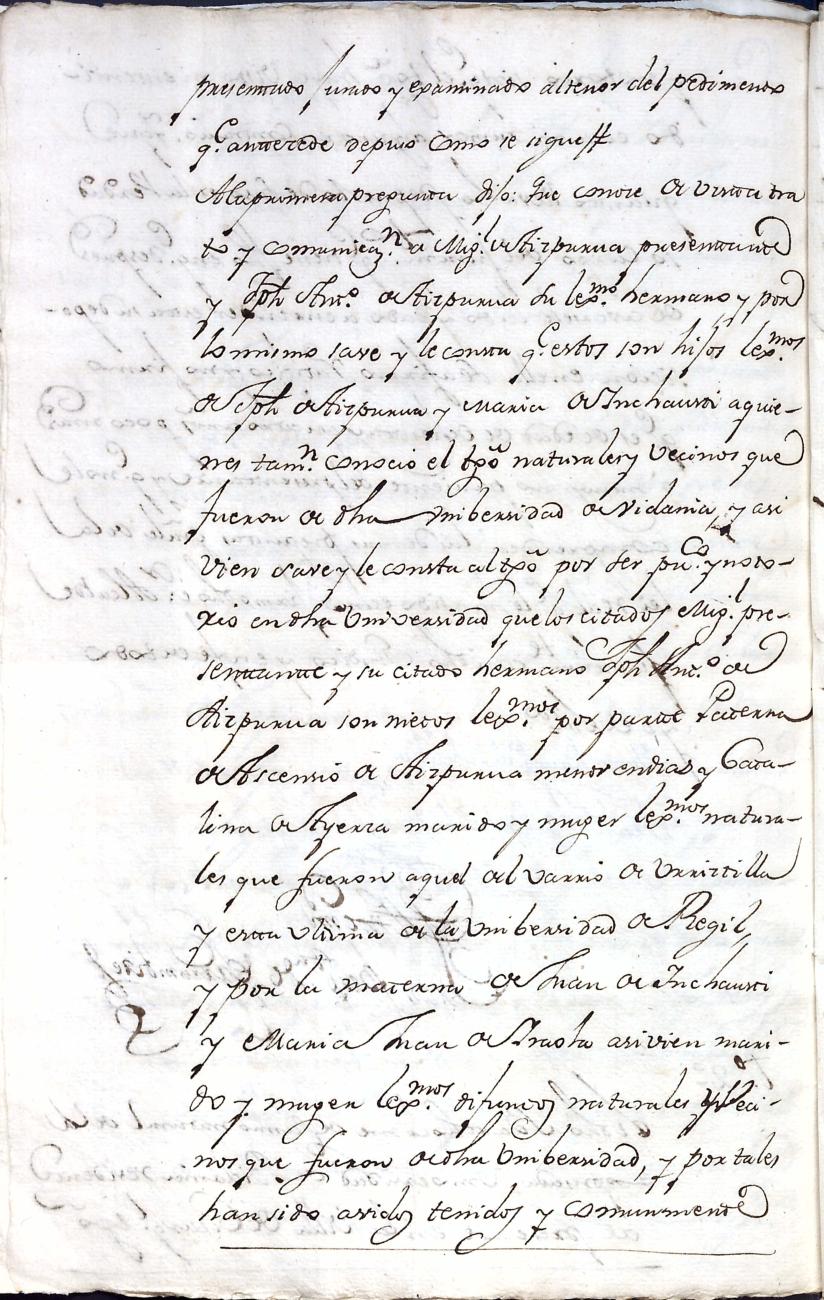 presentado Jurado y examinado altenor del pedimento
q.e antecede depuso como se sigue //
Alaprimera pregunta dijo: Que conoce de vista tra
to y comunicaz.n a Mig.l de Aizpurua presentante
y Jph Ant.o de Aizpurua su lex.mo hermano y por
lo mismo save y le consta q.e estos son hijos lex.mos
de Jph de Aizpurua y Maria de Inchausti aquie-
nes tam.n conocio el tgo naturales y Vecinos que
fueron de dha Unibersidad de Vidania, y asi
vien save y le consta al tgo por ser pu.co y noto-
rio en dha Universidad que los citados Mig.l pre-
sentante y su citado hermano Jph Ant.o de
Aizpurua son nietos lex.mos por parte Paterna
de Ascensio de Aizpurua menor en dias y Cata-
lina de Ayerza marido y muger lex.mos natura-
les que fueron aquel del varrio de Urriztilla
y esta ultima de la Unibersidad de Regil,
y por la materna de Juan de Inchausti
y Maria Juan de Iraola asi vien mari-
do y muger lex.mos difuntos naturales y Veci-
nos que fueron de dha Unibersidad, y por tales
han sido avidos tenidos y comunmente